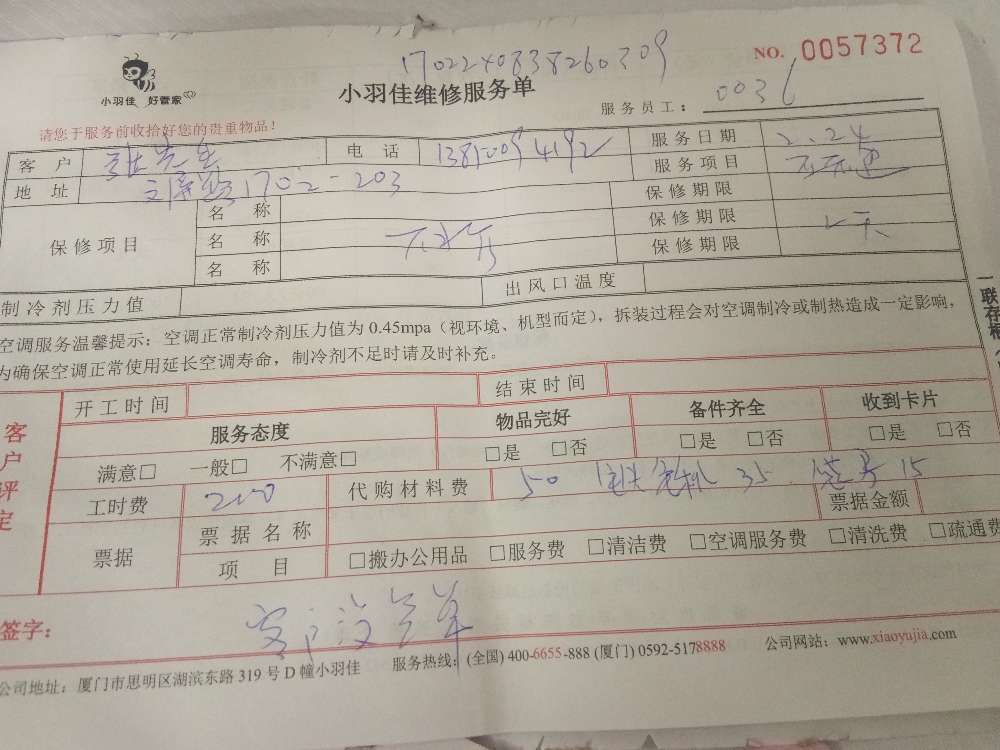 小羽佳 好管家
1702240838260309
NO. 0057372
小羽佳维修服务单
服务员工: 0036
请您于服务前收拾好您的贵重物品!
客户 张先生 电话 服务日期 2.24
地址 1702-203 服务项目
保修项目 名称 保修期限
名称 保修期限
名称 保修期限
制冷剂压力值 出风口温度
空调服务温馨提示：空调正常制冷剂压力值为 0.45mpa（视环境、机型而定），拆装过程会对空调制冷或制热造成一定影响，
为确保空调正常使用延长空调寿命，制冷剂不足时请及时补充。
客户评定
开工时间 结束时间
服务态度 物品完好 备件齐全 收到卡片
满意□ 一般□ 不满意□ □是 □否 □是 □否 □是 □否
工时费 200 代购材料费 50 35 15
票据 票据名称 票据金额
项目 □搬办公用品 □服务费 □清洁费 □空调服务费 □清洗费 □疏通费
签字： 客户没签单
公司地址：厦门市思明区湖滨东路 319 号 D 幢小羽佳 服务热线：(全国) 400-6655-888 (厦门) 0592-5178888 公司网站：www.xiaoyujia.com
一联存根